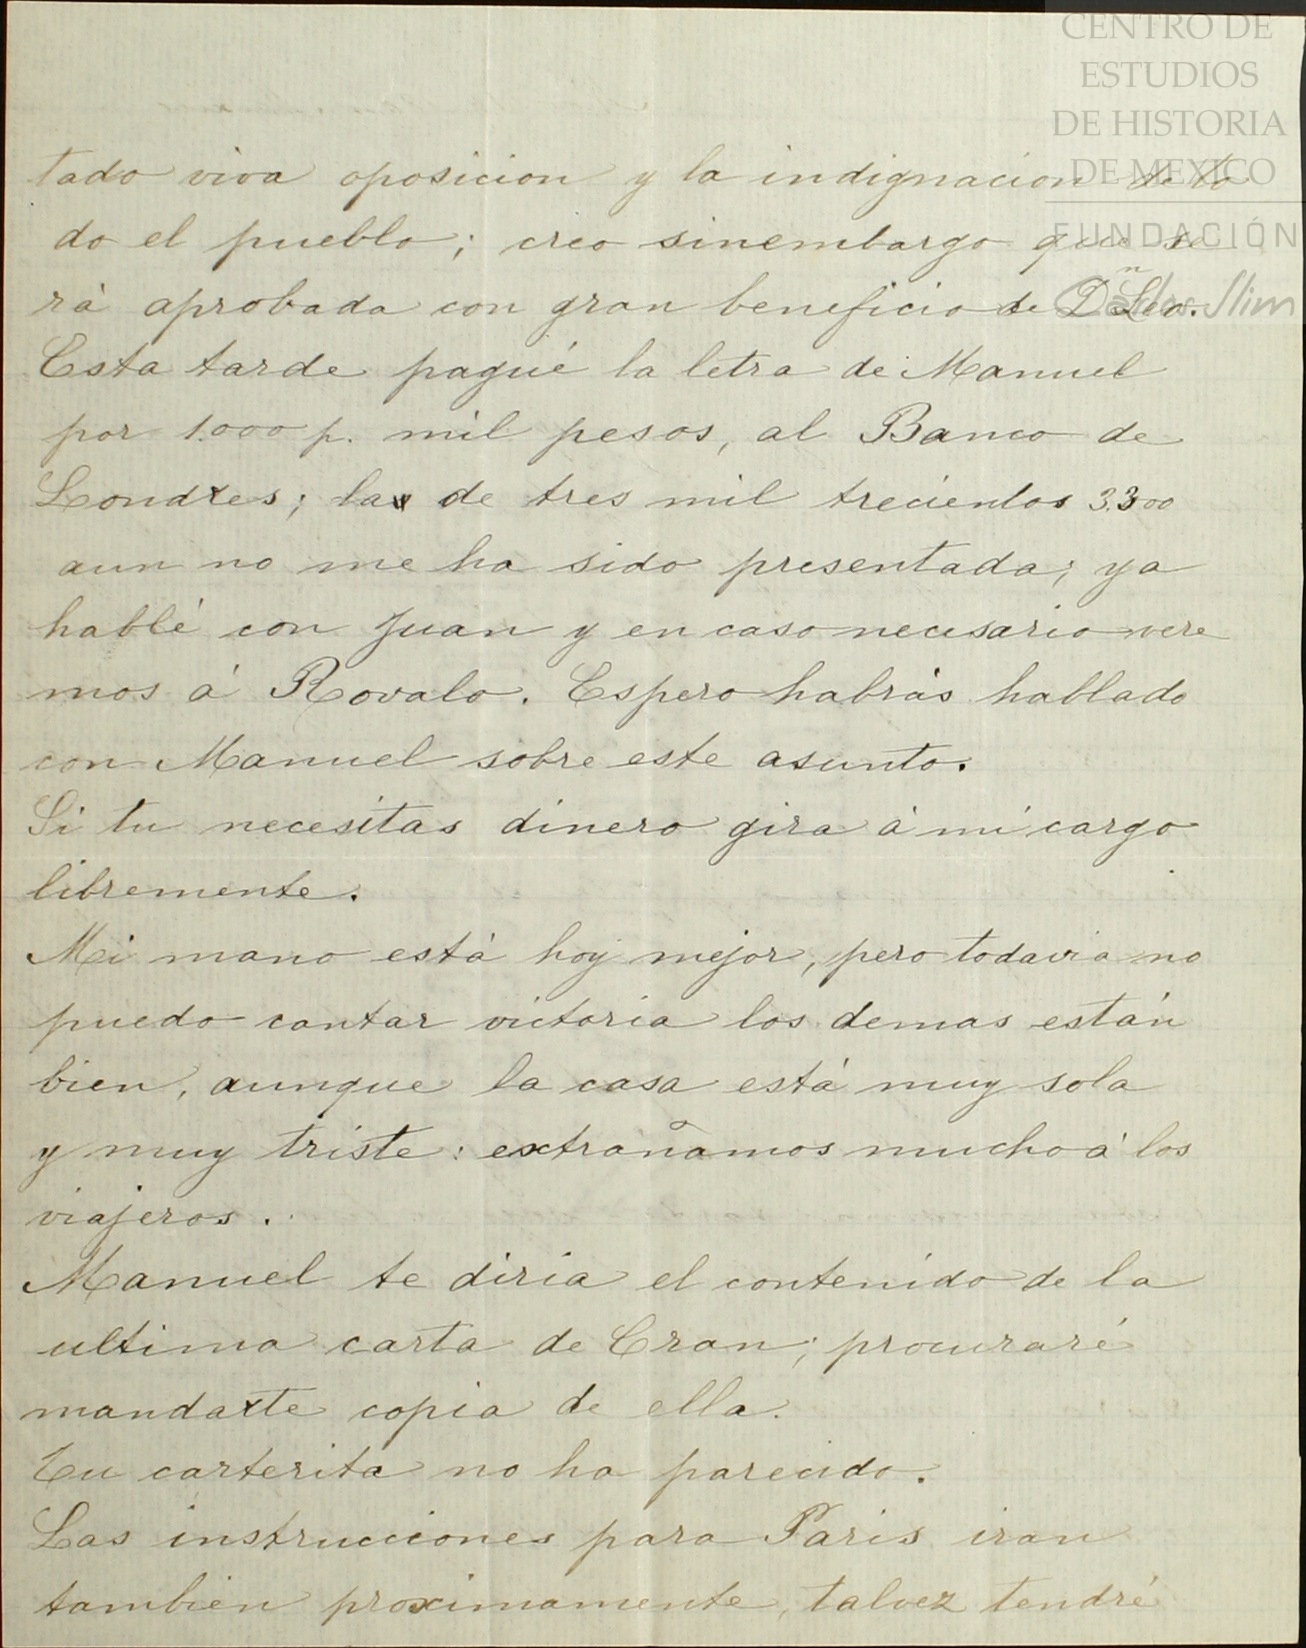 CENTRO DE
ESTUDIOS
DE HISTORIA
DE MEXICO
FUNDACIÓN
Carlos Slim
tado viva oposicion y la indignacion de to
do el pueblo; creo sinembargo que se
rá aprobada con gran beneficio de Dn Leo.
Esta tarde pagué la letra de Manuel
por 1.000 p. mil pesos, al Banco de
Londres; la de tres mil trecientos 3.300
aun no me ha sido presentada; ya
hablé con Juan y en caso necesario vere
mos á Rovalo. Espero habrás hablado
con Manuel sobre este asunto.
Si tu necesitas dinero gira á mi cargo
libremente.
Mi mano está hoy mejor, pero todavia no
puedo cantar victoria los demas están
bien, aunque la casa está muy sola
y muy triste: extrañamos mucho á los
viajeros.
Manuel te diria el contenido de la
ultima carta de Cran; procuraré
mandarte copia de ella.
Tu carterita no ha parecido.
Las instrucciones para Paris iran
tambien proximamente, talvez tendré